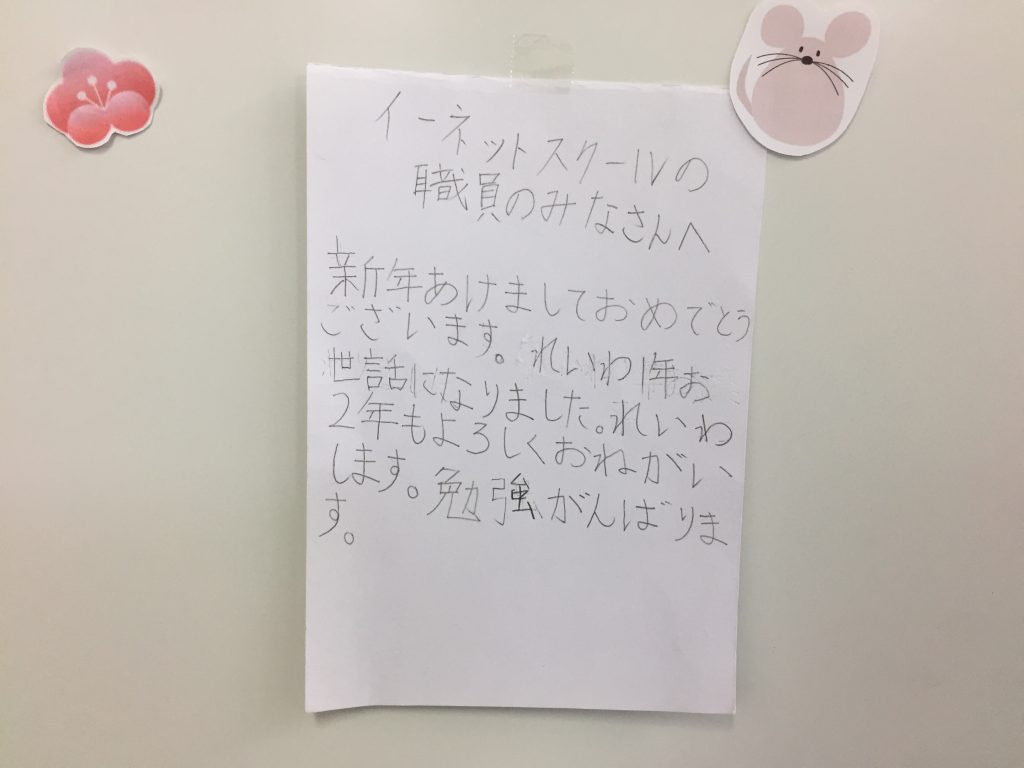 イーネットスクールの
職員のみなさんへ
新年あけましておめでとう
ございます。れいわ1年お
世話になりました。れいわ
2年もよろしくおねがい
します。勉強がんばりま
す。